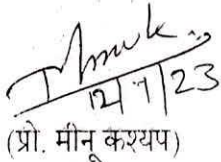 12/7/23
(प्रो. मीनू कश्यप)